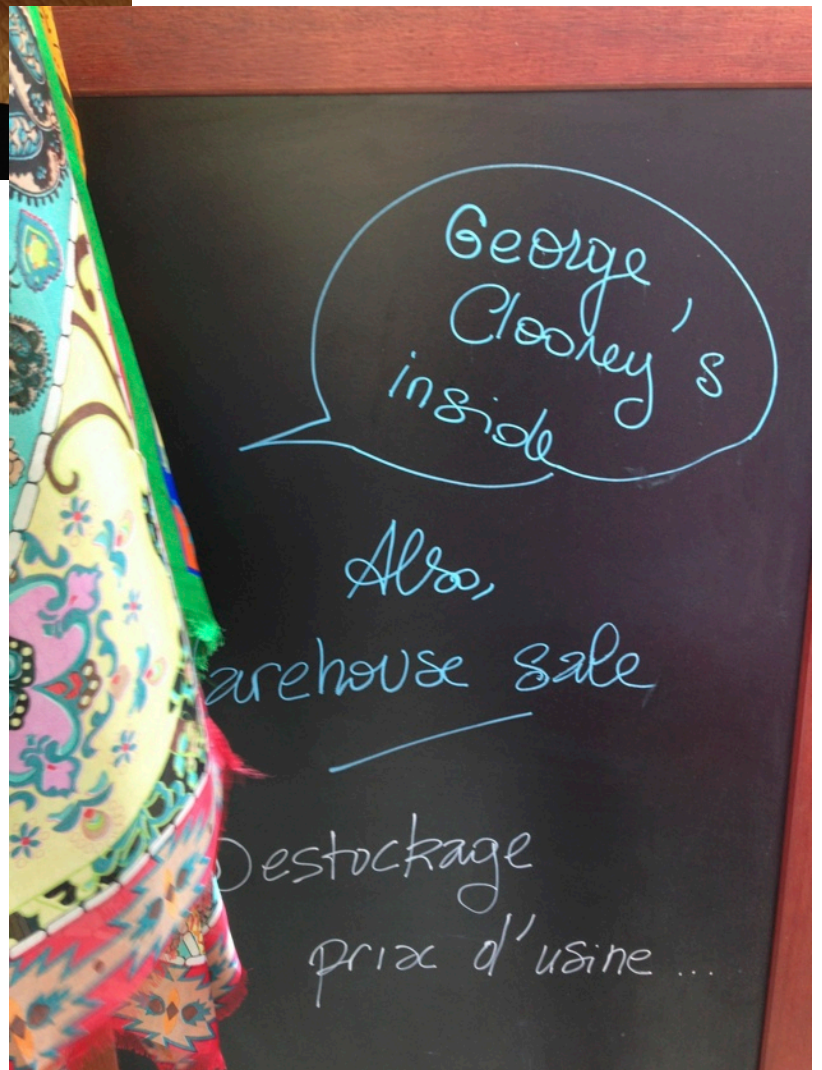 George
Clooney's
inside
Also,
arehouse sale
Destockage
prix d'usine...